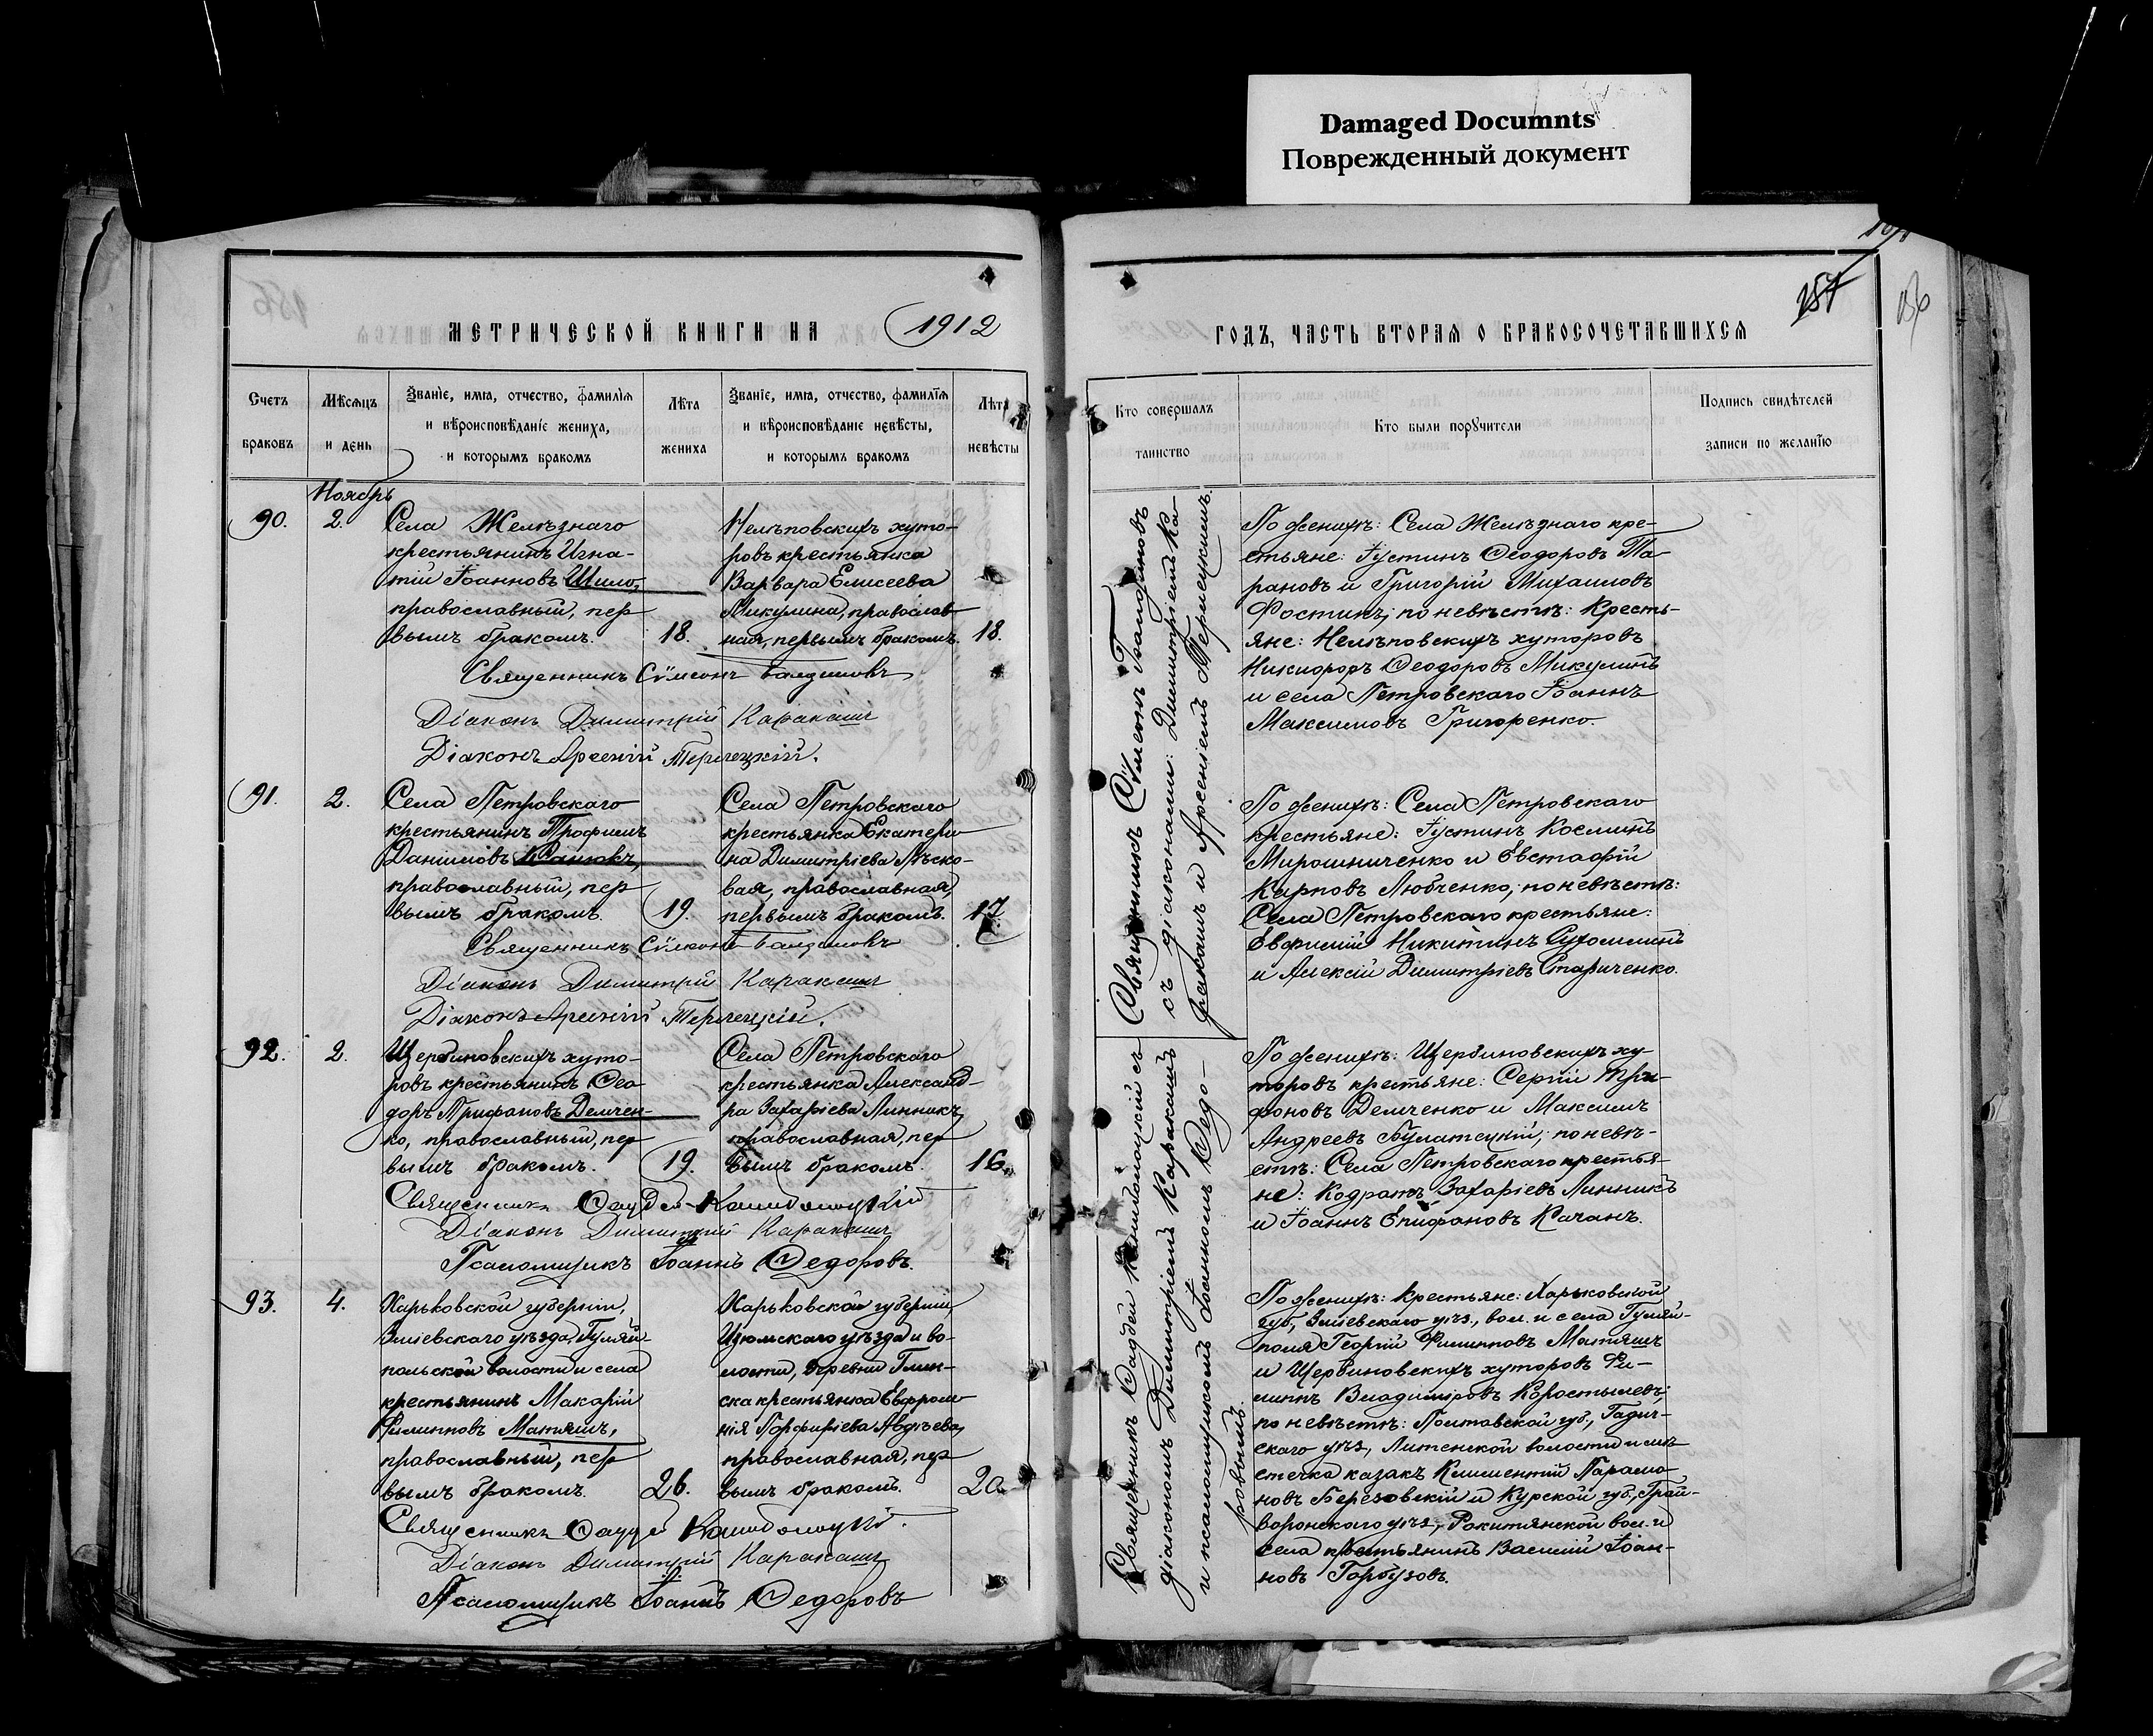 Damaged Documnts
Поврежденный документ
МЕТРИЧЕСКОЙ КНИГИ НА 1912
Счетъ браковъ
Мѣсѧцъ и день
Званіе, имѧ, отчество, фамиліѧ
и вѣроисповѣданіе жениха,
и которымъ бракомъ
Лѣта жениха
Званіе, имѧ, отчество, фамиліѧ
и вѣроисповѣданіе невѣсты,
и которымъ бракомъ
Лѣта невѣсты
Ноябрь
90.
2.
Села Желѣзнаго
крестьянинъ Игна-
тій Іоанновъ Шило,
православный, пер
вымъ бракомъ.
18.
Нелѣповскихъ хуто-
ровъ крестьянка
Варвара Елисеева
Микулина, православ
ная, первымъ бракомъ.
18.
Священникъ Сѵмеонъ
Діаконъ Димитрій Каракашъ
Діаконъ Арсеній Терлецкій.
91.
2.
Села Петровскаго
крестьянинъ Трофимъ
Даніиловъ
православный, пер
вымъ бракомъ.
19.
Села Петровскаго
крестьянка Екатери
на Димитріева Лѣско-
вая, православная,
первымъ бракомъ.
17.
Священникъ Сѵмеонъ
Діаконъ Димитрій Каракашъ
Діаконъ Арсеній Терлецкій.
92.
2.
Щербиновскихъ хуто-
ровъ крестьянинъ Ѳео-
доръ Трифоновъ Демчен-
ко, православный, пер
вымъ бракомъ.
19.
Села Петровскаго
крестьянка Александ-
ра Захаріева Линникъ,
православная, пер
вымъ бракомъ.
16.
Священникъ Ѳаддей
Діаконъ Димитрій Каракашъ
Псаломщикъ Іоаннъ Ѳедоровъ.
93.
4.
Харьковской губерніи,
Зміевскаго уѣзда, Гуляй-
польской волости и села
крестьянинъ Макарій
Филипповъ Матяшъ,
православный, пер
вымъ бракомъ.
26.
Харьковской губерніи,
Изюмскаго уѣзда и во-
лости, деревни Глин-
ска крестьянка Евфроси
нія Порфиріева Авдѣева,
православная, пер
вымъ бракомъ.
20.
Священникъ Ѳаддей
Діаконъ Димитрій Каракашъ
Псаломщикъ Іоаннъ Ѳедоровъ
157
ГОДЪ, ЧАСТЬ ВТОРАѦ О БРАКОСОЧЕТАВШИХСѦ
Кто совершалъ таинство
Кто были порꙋчители
Подпись свидѣтелей
записи по желанїю
Священникъ Сѵмеонъ
съ діаконами: Димитріемъ Ка
ракашъ и Арсеніемъ Терлецкимъ.
По женихѣ: Села Желѣзнаго кре-
стьяне: Іустинъ Ѳеодоровъ Та-
рановъ и Григорій Михаиловъ
Фостикъ; по невѣстѣ: Кресть-
яне: Нелѣповскихъ хуторовъ
Никифоръ Ѳеодоровъ Микулинъ
и села Петровскаго Іоаннъ
Максимовъ Григоренко.
По женихѣ: Села Петровскаго
крестьяне: Іустинъ Косминъ
Мирошниченко и Евстафій
Карповъ Любченко; по невѣстѣ:
Села Петровскаго крестьяне:
Евфимій Никитинъ Сухомлинъ
и Алексій Димитріевъ Стариченко.
Священникъ Ѳаддей съ
діакономъ Димитріемъ Каракашъ
и псаломщикомъ Іоанномъ Ѳедо-
ровымъ.
По женихѣ: Щербиновскихъ ху-
торовъ крестьяне: Сергій Три-
фоновъ Демченко и Максимъ
Андреевъ Булатецкій; по невѣ-
стѣ: Села Петровскаго крестья-
не: Кодратъ Захаріевъ Линникъ
и Іоаннъ Епифановъ Качанъ.
По женихѣ: крестьяне: Харьковской
губ., Зміевскаго уѣз., вол. и села Гуляй-
поля Георгій Филипповъ Матяшъ
и Щербиновскихъ хуторовъ Фи-
липпъ Владиміровъ Коростылевъ;
по невѣстѣ: Полтавской губ., Гадяч-
скаго уѣз., Лютенской волости и мѣ
стечка казакъ Климентій Парамо
новъ Березовскій и Курской губ., Грай-
воронскаго уѣз., Ракитянской вол. и
села крестьянинъ Василій Іоан-
новъ Горбузовъ.